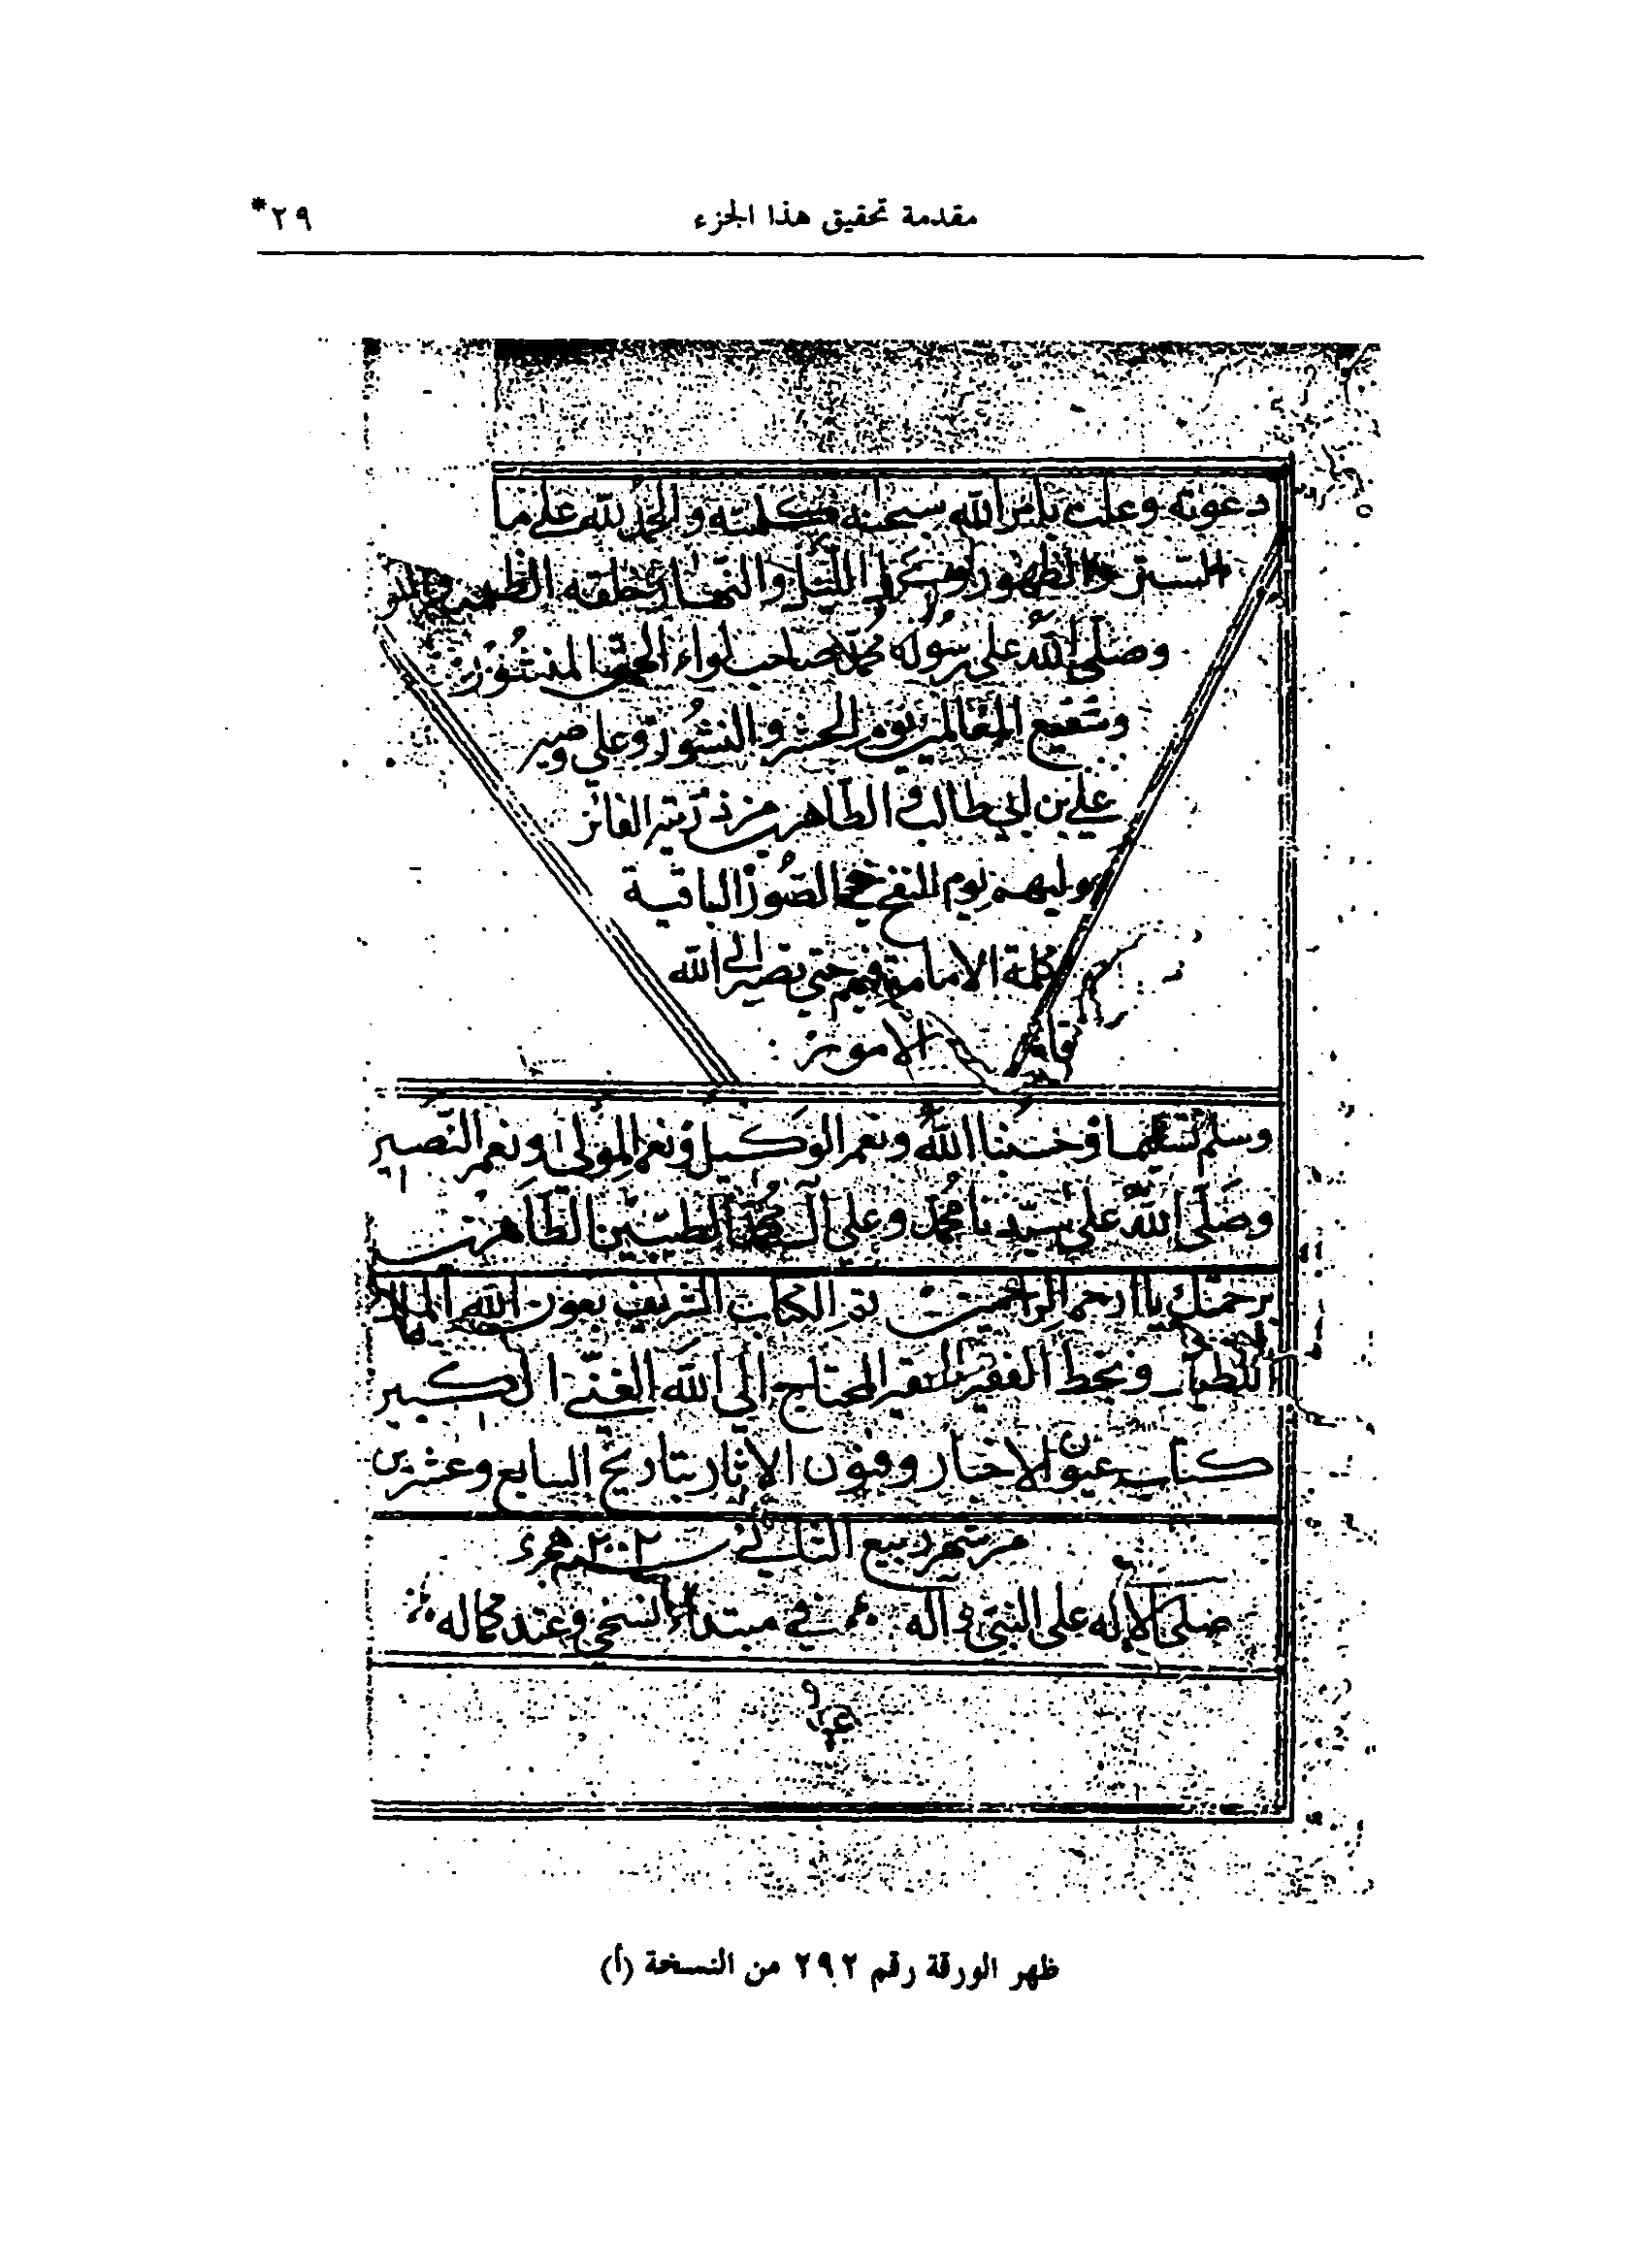 مقدمة تحقيق هذا الجزء
٢٩*
دعوته وعلت بأمر الله سبحنه كلمته والحمد لله على ما
الستر والظهور الليل والنهار
وصلى الله على رسوله محمد صاحب لواء الحمد المنشور
وشفيع العالمين يوم الحشر والنشور وعلى وصيه
علي بن ابي طالب والطاهرين من ذريته الفائز
يوم النفخ في الصور الباقية
كلمة الامامة فيهم حتى تصير الى الله
الامور
وسلم تسليما وحسبنا الله ونعم الوكيل ونعم المولى ونعم النصير
وصلى الله على سيدنا محمد وعلى آل محمد الطيبين الطاهرين
برحمتك يا ارحم الراحمين تم الكتاب الشريف بعون الله الملك
وبخط الفقير الحقير المحتاج الى الله الغني الكبير
كتاب عيون الاخبار وفنون الاثار بتاريخ السابع وعشرين
من شهر ربيع الثاني
صلى الاله على النبي وآله في مبتداء نسخي وعند كماله
ظهر الورقة رقم ٢٩٢ من النسخة (أ)